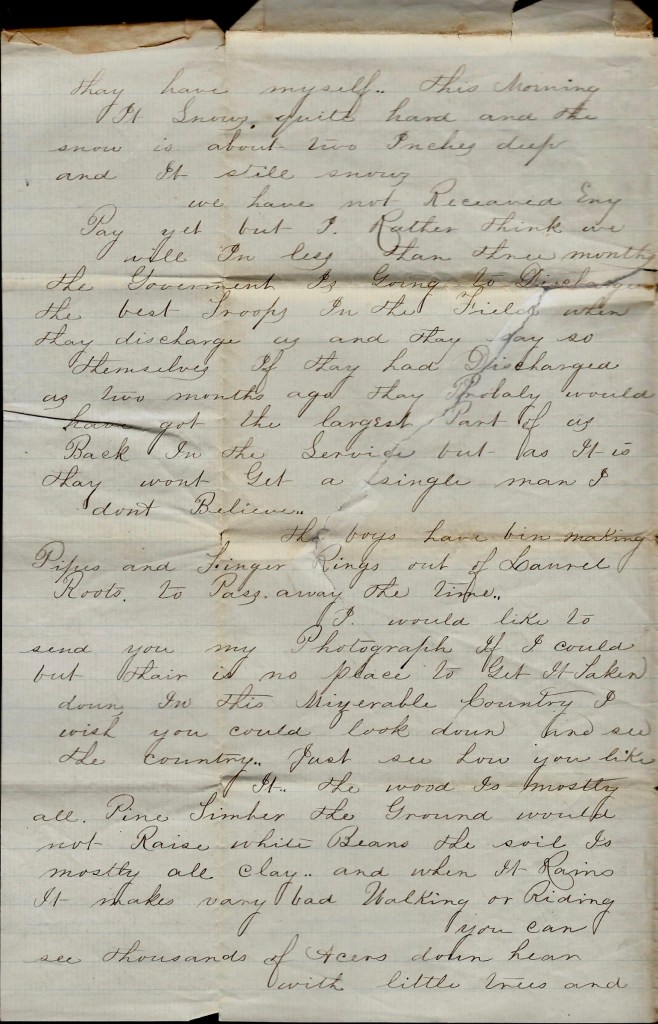 thay have myself.. this Morning
It Snows quite hard and the
snow is about two Inches deep
and It still snows
we have not Receaved Eny
Pay yet but I. Rather think we
will In less than three months
the Goverment Is Going to Discharge
the best Troops In the Field when
thay discharge us and thay say so
themselves If thay had Discharged
us two months ago thay Probaly would
have got the largest Part of us
Back In the Service but as It is
thay wont Get a single man I
dont Believe..
the boys have bin making
Pipes and Finger Rings out of Laurel
Roots. to Pass. away the time..
I. would like to
send you my Photograph If I could
but thair is no place to Get It Taken
down In this Miserable Country I
wish you could look down and see
the country.. Just see how you like
It.. the wood Is mostly
all. Pine Timber the Ground would
not Raise white Beans the soil Is
mostly all clay.. and when It Rains
It makes vary bad Walking or Riding
you can
see thousands of Acers down hear
with little trees and